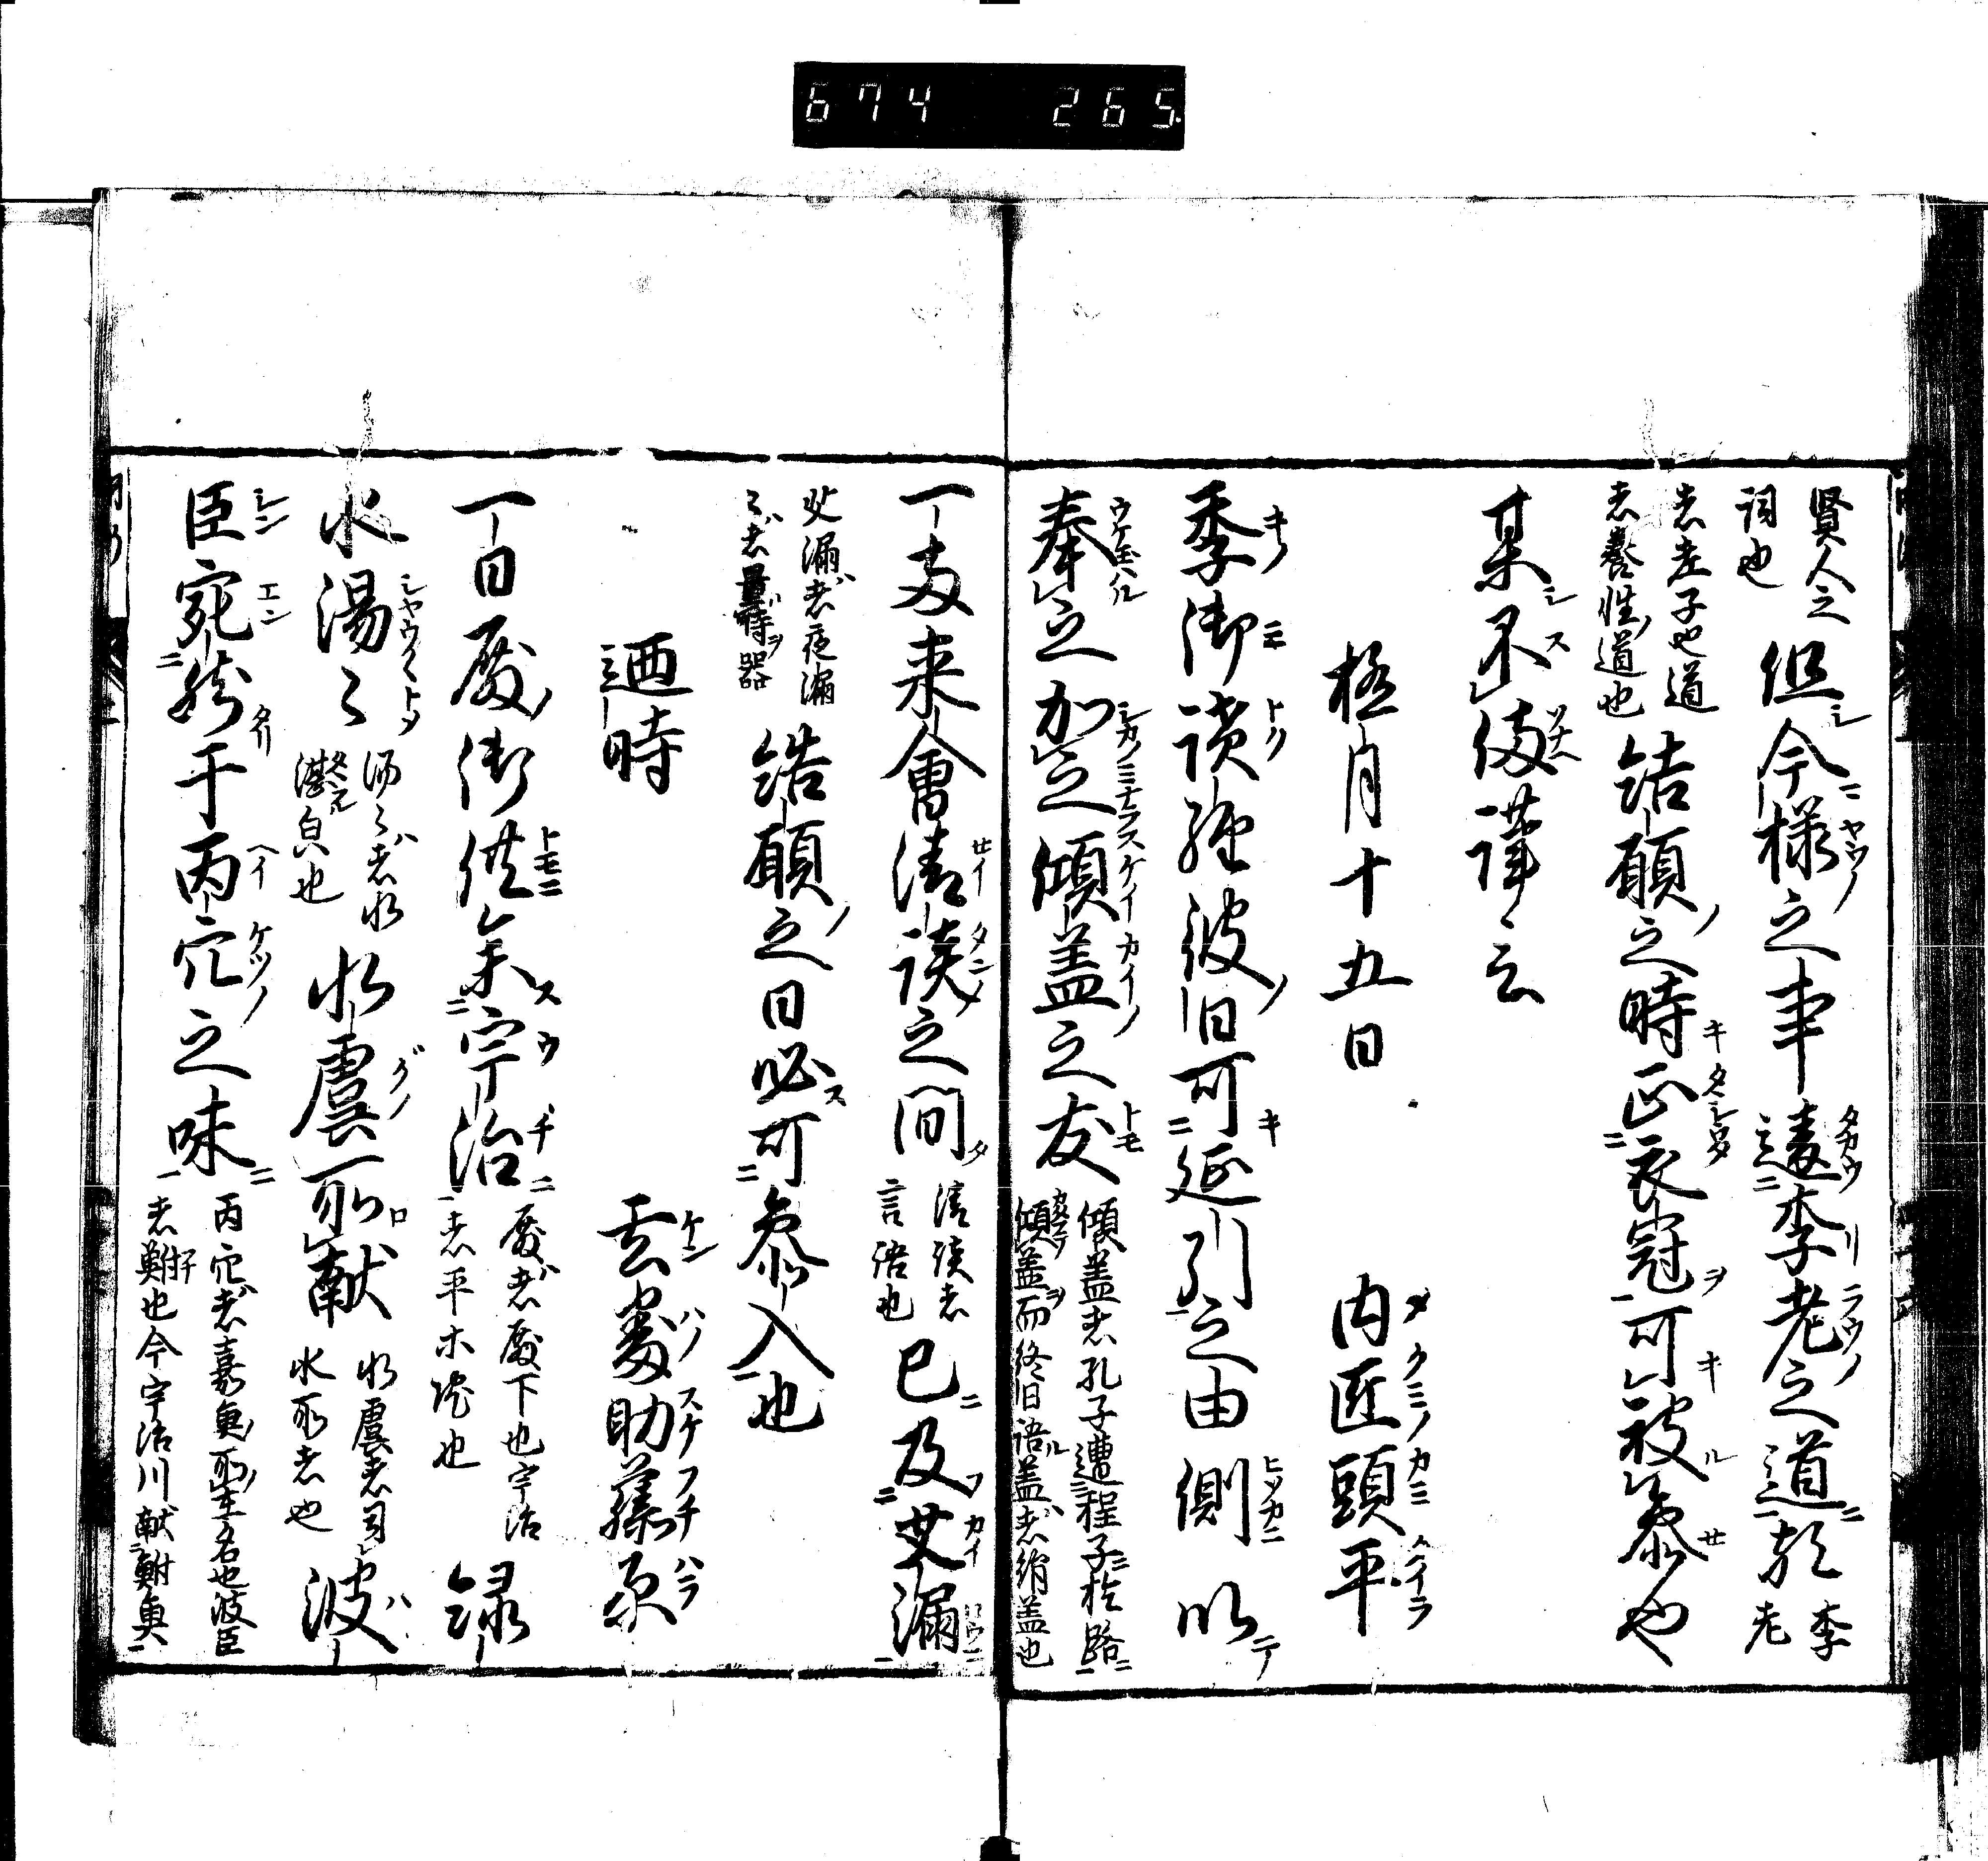 674 265
賢人之
詞也
但今様之事違李老之道歟
李
老
者老子也道
者養性道也
結願之時正衣冠可被参也
某不備謹言
極月十五日 内匠頭平
季御読経彼旧可延引之由側以
奉之加之傾蓋之友
傾蓋者孔子遭程子於路
傾蓋而終日語蓋者絹蓋也
丁来會清談之間
清談者
言語也
已及艾漏
艾漏者夜漏
之者量時器
結願之日必可参入也
廼時 玄蕃助藤原
丁日殿御供参宇治
殿者殿下也宇治
者平木院也
緑
水湯々
湯々者水
湛皃也
水虞所献
水虞者司
水所者也
波
臣宛然于丙穴之味
丙穴者嘉魚所生名也波臣
者鮒也今宇治川献鮒魚